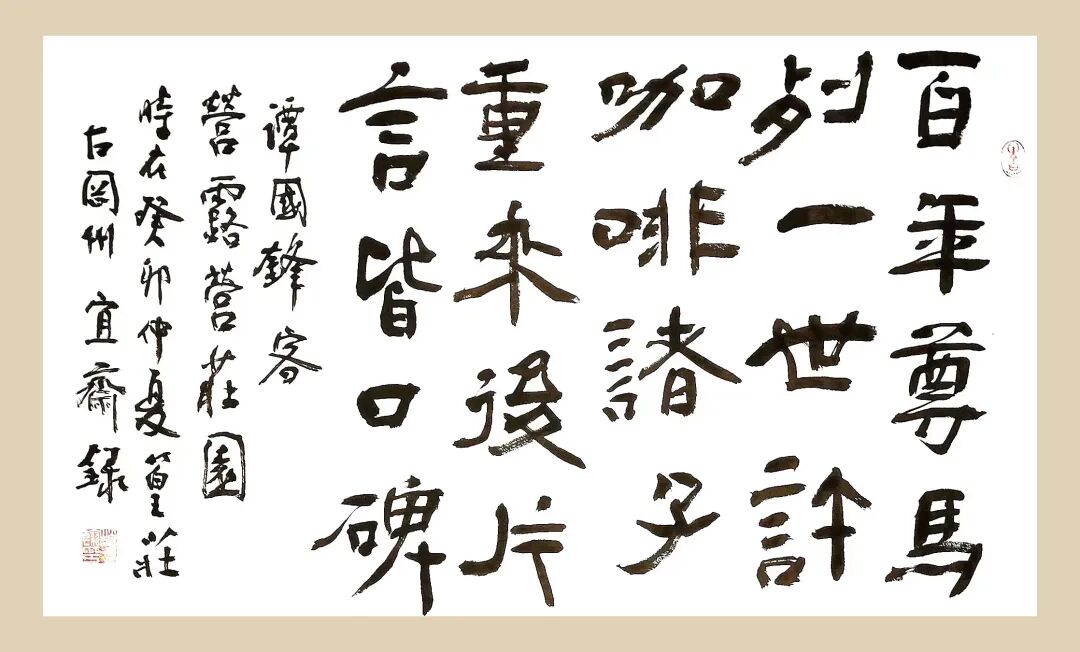 百年尊馬
列一世許
咖啡諸子
重來後片
言皆口碑
譚國鋒客
營露營莊園
時在癸卯仲夏篁莊
古岡州宜齋錄